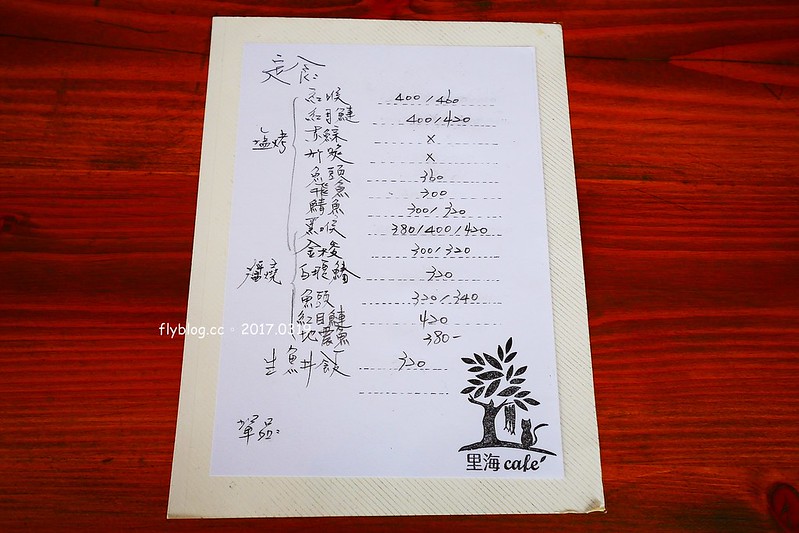 定食:
紅喉 400/460
紅目鰱 400/420
赤鯮 x
竹筴 x
塩烤
魚頭 360
飛魚 300
鯖魚 300/320
黑喉 380/400/420
金梭 300/320
滷燒 320
魚頭 320/340
紅目鰱 420
地震魚 380-
生魚丼飯 320
單品:
flyblog.cc。2017.03
里海 cafe'